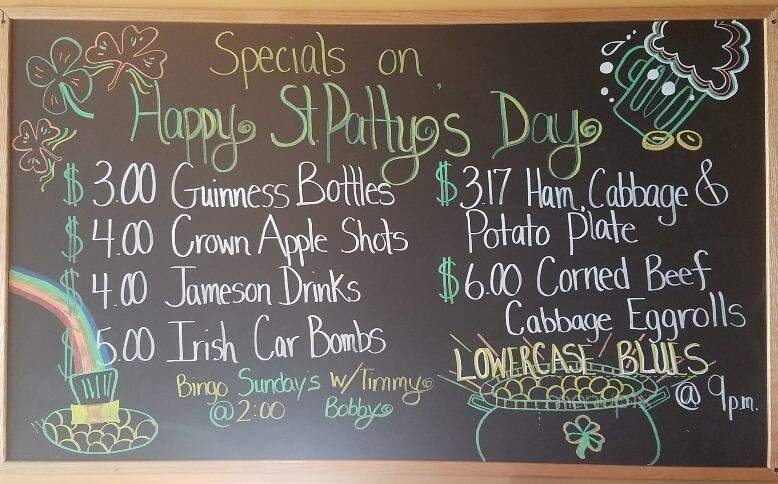 Specials on
Happy St. Patty's Day
$3.00 Guinness Bottles
$4.00 Crown Apple Shots
$4.00 Jameson Drinks
$5.00 Irish Car Bombs
Bingo Sunday's w/Timmy
@ 2:00 Bobby
$3.17 Ham, Cabbage &
Potato Plate
$6.00 Corned Beef
Cabbage Eggrolls
LOWERCASE BLUES
@ 9p.m.